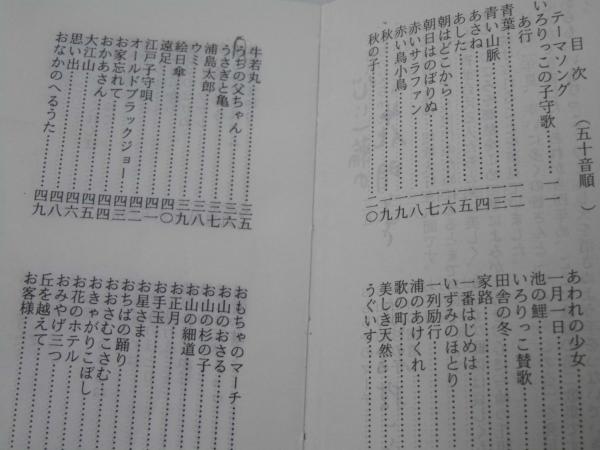 目次　（五十音順）
テーマソング
いろりっこの子守歌……一一
あ行
青葉……一二
青い山脈……一四
あさね……
あした……一五
朝はどこから……一六
朝日はのぼりぬ……一七
赤いサラファン……一八
赤い鳥小鳥……一九
秋……一九
秋の子……二〇
あわれの少女……
一月一日……
池の鯉……
いろりっこ賛歌……
田舎の冬……
家路……
一番はじめは……
いずみのほとり……
一列励行……
浦のあけくれ……
歌の町……
美しき天然……
うぐいす……
牛若丸……三五
うちの父ちゃん……三六
うさぎと亀……三七
浦島太郎……三七
ウミ……三八
絵日傘……三九
遠足……四〇
江戸子守唄……四一
オールドブラックジョー……四二
お家忘れて……四三
おかあさん……四四
大江山……四五
思い出……四六
おなかのへるうた……四九
おもちゃのマーチ……
お山のおさる……
お山の杉の子……
お山の細道……
お正月……
お手玉……
お星さま……
おちばの踊り……
おおさむこさむ……
おきゃがりこぼし……
お花のホテル……
おみやげ三つ……
丘を越えて……
お客様……